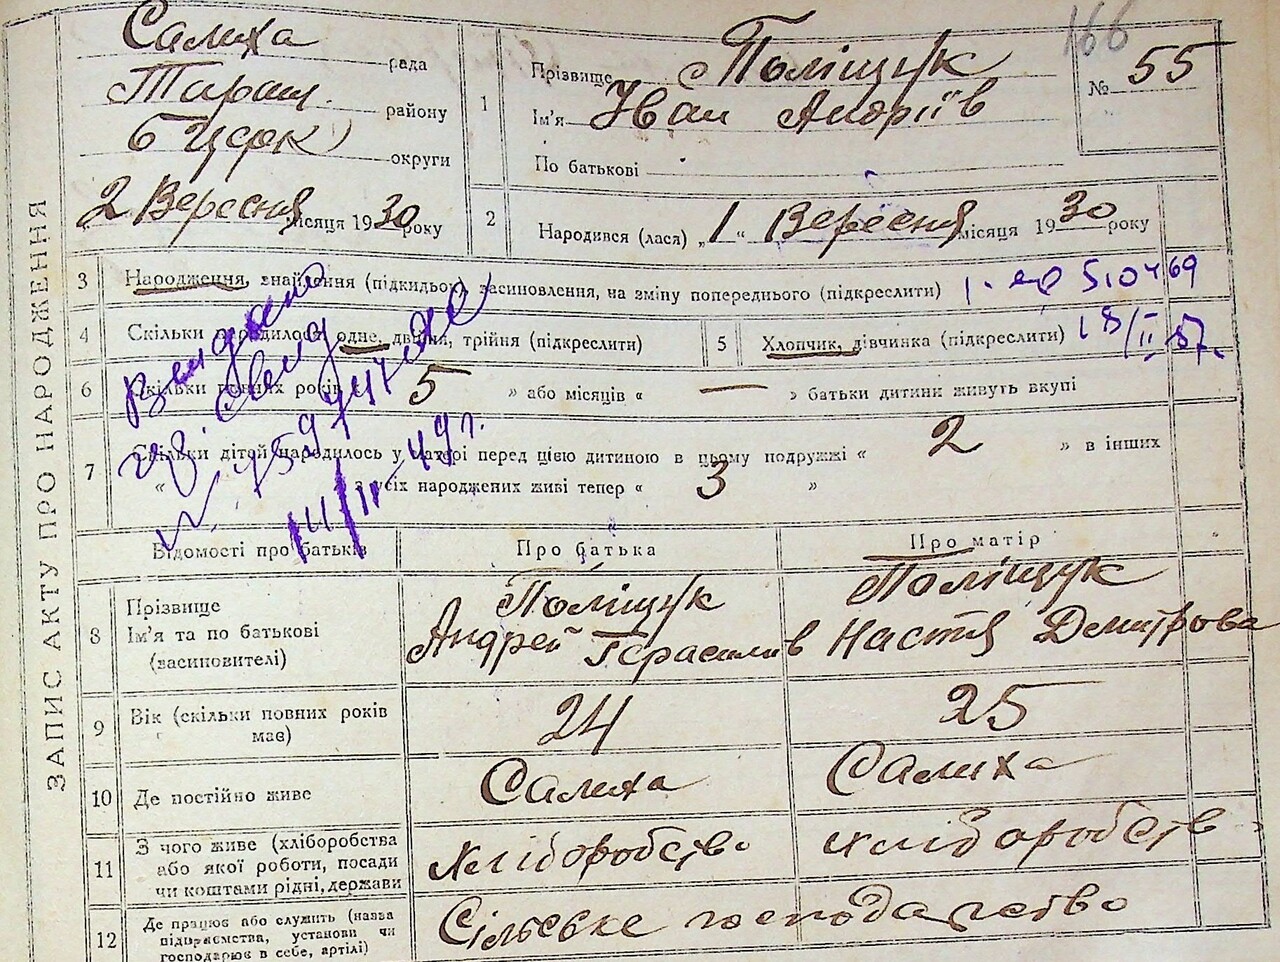 ЗАПИС АКТУ ПРО НАРОДЖЕННЯ
166
Салиха рада
Таращ. району
Б Церк округи
2 Вересня місяця 1930 року
1
Прізвище Поліщук
Ім'я Іван Андріїв
По батькові
№ 55
2 Народився (лася) „1“ Вересня місяця 1930 року
3 Народження, знайдення (підкидьок), засиновлення, на зміну попереднього (підкреслити)
510469
4 Скільки народилося одне, двійня, трійня (підкреслити)
5 Хлопчик, дівчинка (підкреслити)
18/II 57.
6 Скільки повних років „ 5 » або місяців « — » батьки дитини живуть вкупі
7 Скільки дітей народилось у матері перед цією дитиною в цьому подружжі « 2 » в інших
« з усіх народжених живі тепер « 3 »
Видано
14/II 49 г.
Відомості про батьків Про батька Про матір
8 Прізвище
Ім'я та по батькові
(засиновителі)
Поліщук
Андрей Герасимів
Поліщук
Настя Демитрова
9 Вік (скільки повних років
має)
24 25
10 Де постійно живе Салиха Салиха
11 З чого живе (хліборобства
або якої роботи, посади
чи коштами рідні, держави
хліборобство хліборобств
12 Де працює або служить (назва
підприємства, установи чи
господарює в себе, артілі)
Сільське господарство